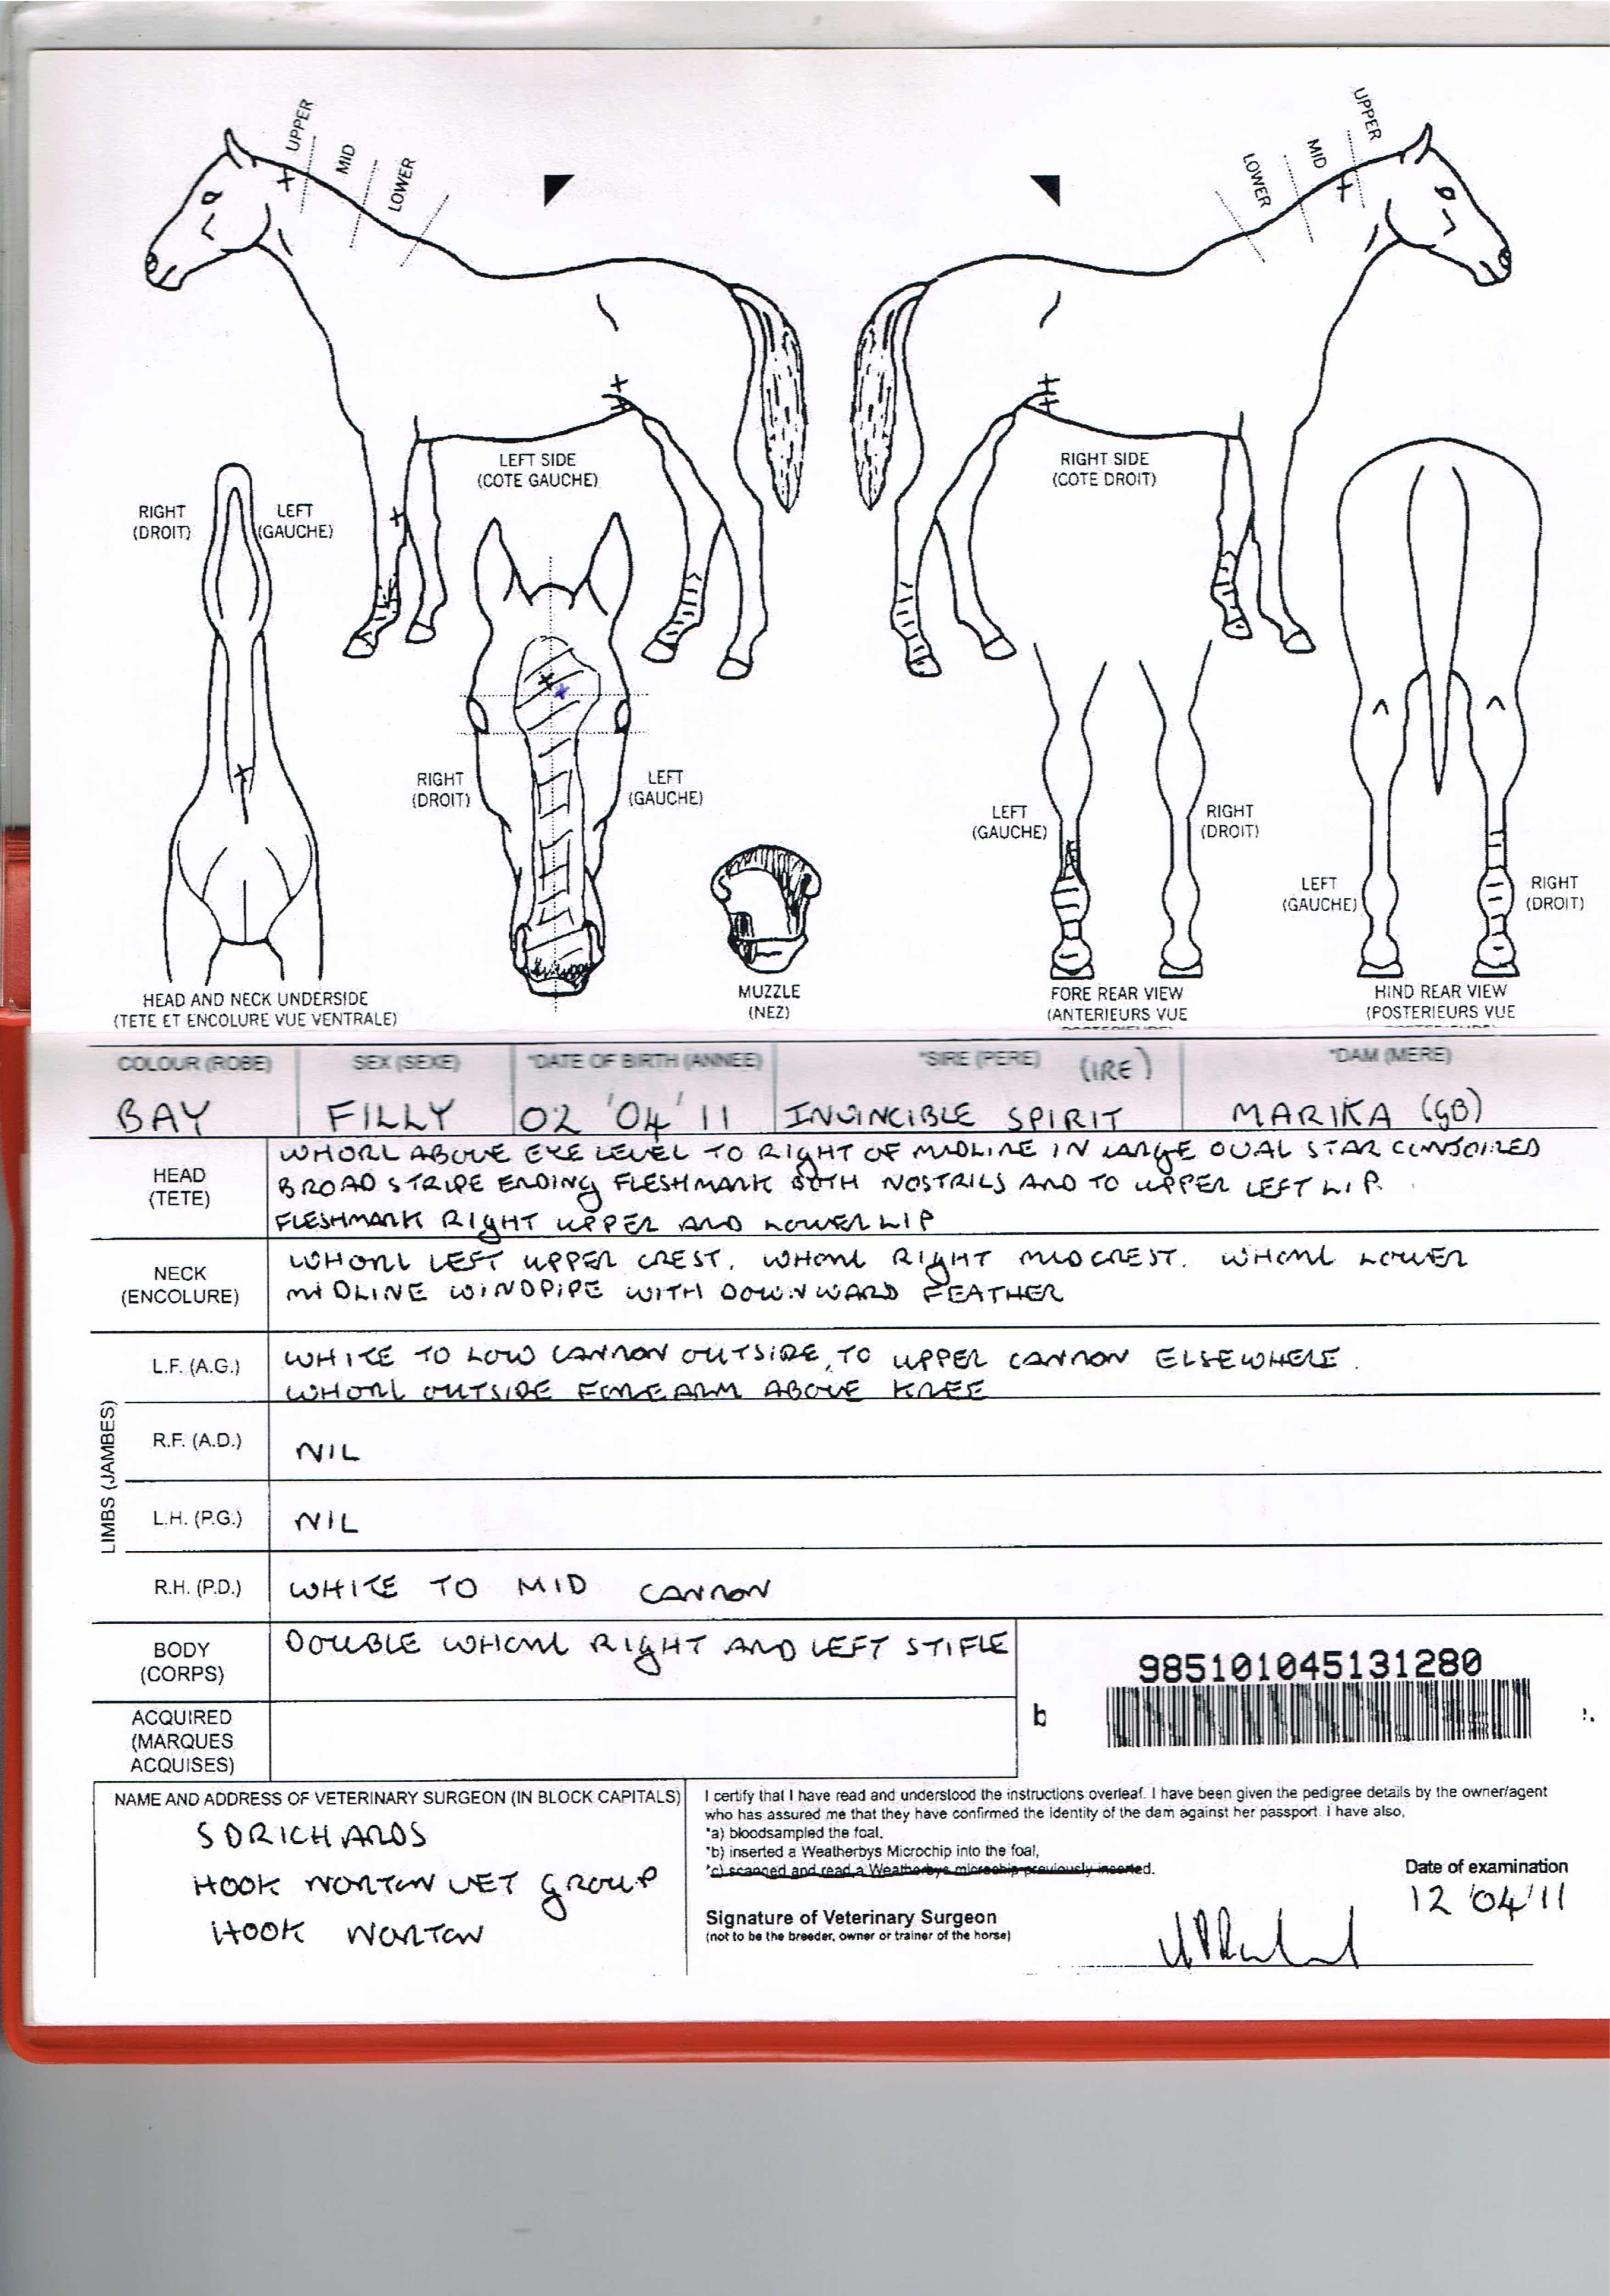 UPPER
MID
LOWER
UPPER
MID
LOWER
LEFT SIDE
(COTE GAUCHE)
RIGHT SIDE
(COTE DROIT)
RIGHT
(DROIT)
LEFT
(GAUCHE)
RIGHT
(DROIT)
LEFT
(GAUCHE)
LEFT
(GAUCHE)
RIGHT
(DROIT)
LEFT
(GAUCHE)
RIGHT
(DROIT)
HEAD AND NECK UNDERSIDE
(TETE ET ENCOLURE VUE VENTRALE)
MUZZLE
(NEZ)
FORE REAR VIEW
(ANTERIEURS VUE
HIND REAR VIEW
(POSTERIEURS VUE
COLOUR (ROBE) SEX (SEXE) *DATE OF BIRTH (ANNEE) *SIRE (PERE) (IRE) *DAM (MERE)
BAY FILLY 02 '04 '11 INVINCIBLE SPIRIT MARIKA (GB)
HEAD
(TETE)
WHORL ABOVE EYE LEVEL TO RIGHT OF MIDLINE IN LARGE OVAL STAR CONJOINED
BROAD STRIPE ENDING FLESHMARK BOTH NOSTRILS AND TO UPPER LEFT LIP.
FLESHMARK RIGHT UPPER AND LOWER LIP
NECK
(ENCOLURE)
WHORL LEFT UPPER CREST. WHORL RIGHT MIDCREST. WHORL LOWER
MIDLINE WINDPIPE WITH DOWNWARD FEATHER
LIMBS (JAMBES)
L.F. (A.G.)
WHITE TO LOW CANNON OUTSIDE, TO UPPER CANNON ELSEWHERE.
WHORL OUTSIDE FOREARM ABOVE KNEE
R.F. (A.D.) NIL
L.H. (P.G.) NIL
R.H. (P.D.) WHITE TO MID CANNON
BODY
(CORPS)
DOUBLE WHORL RIGHT AND LEFT STIFLE
985101045131280
b
ACQUIRED
(MARQUES
ACQUISES)
NAME AND ADDRESS OF VETERINARY SURGEON (IN BLOCK CAPITALS)
SDRICHARDS
HOOK NORTON VET GROUP
HOOK NORTON
I certify that I have read and understood the instructions overleaf. I have been given the pedigree details by the owner/agent
who has assured me that they have confirmed the identity of the dam against her passport. I have also,
*a) bloodsampled the foal,
*b) inserted a Weatherbys Microchip into the foal,
*c) scanned and read a Weatherbys microchip previously inserted.
Date of examination
12 '04 '11
Signature of Veterinary Surgeon
(not to be the breeder, owner or trainer of the horse)